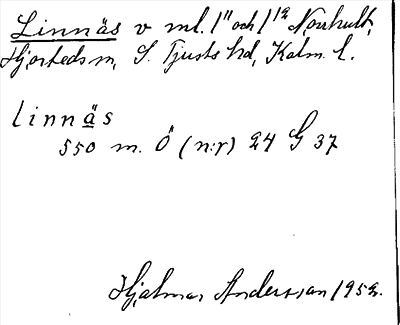 Linnäs v ml. 1" och 1¹² Norrhult,
Hjorteds sn, S. Tjusts hd, Kalm. l.
linnäs
550 m. Ö (n:r) 24 G 37
Hjalmar Andersson 1952.